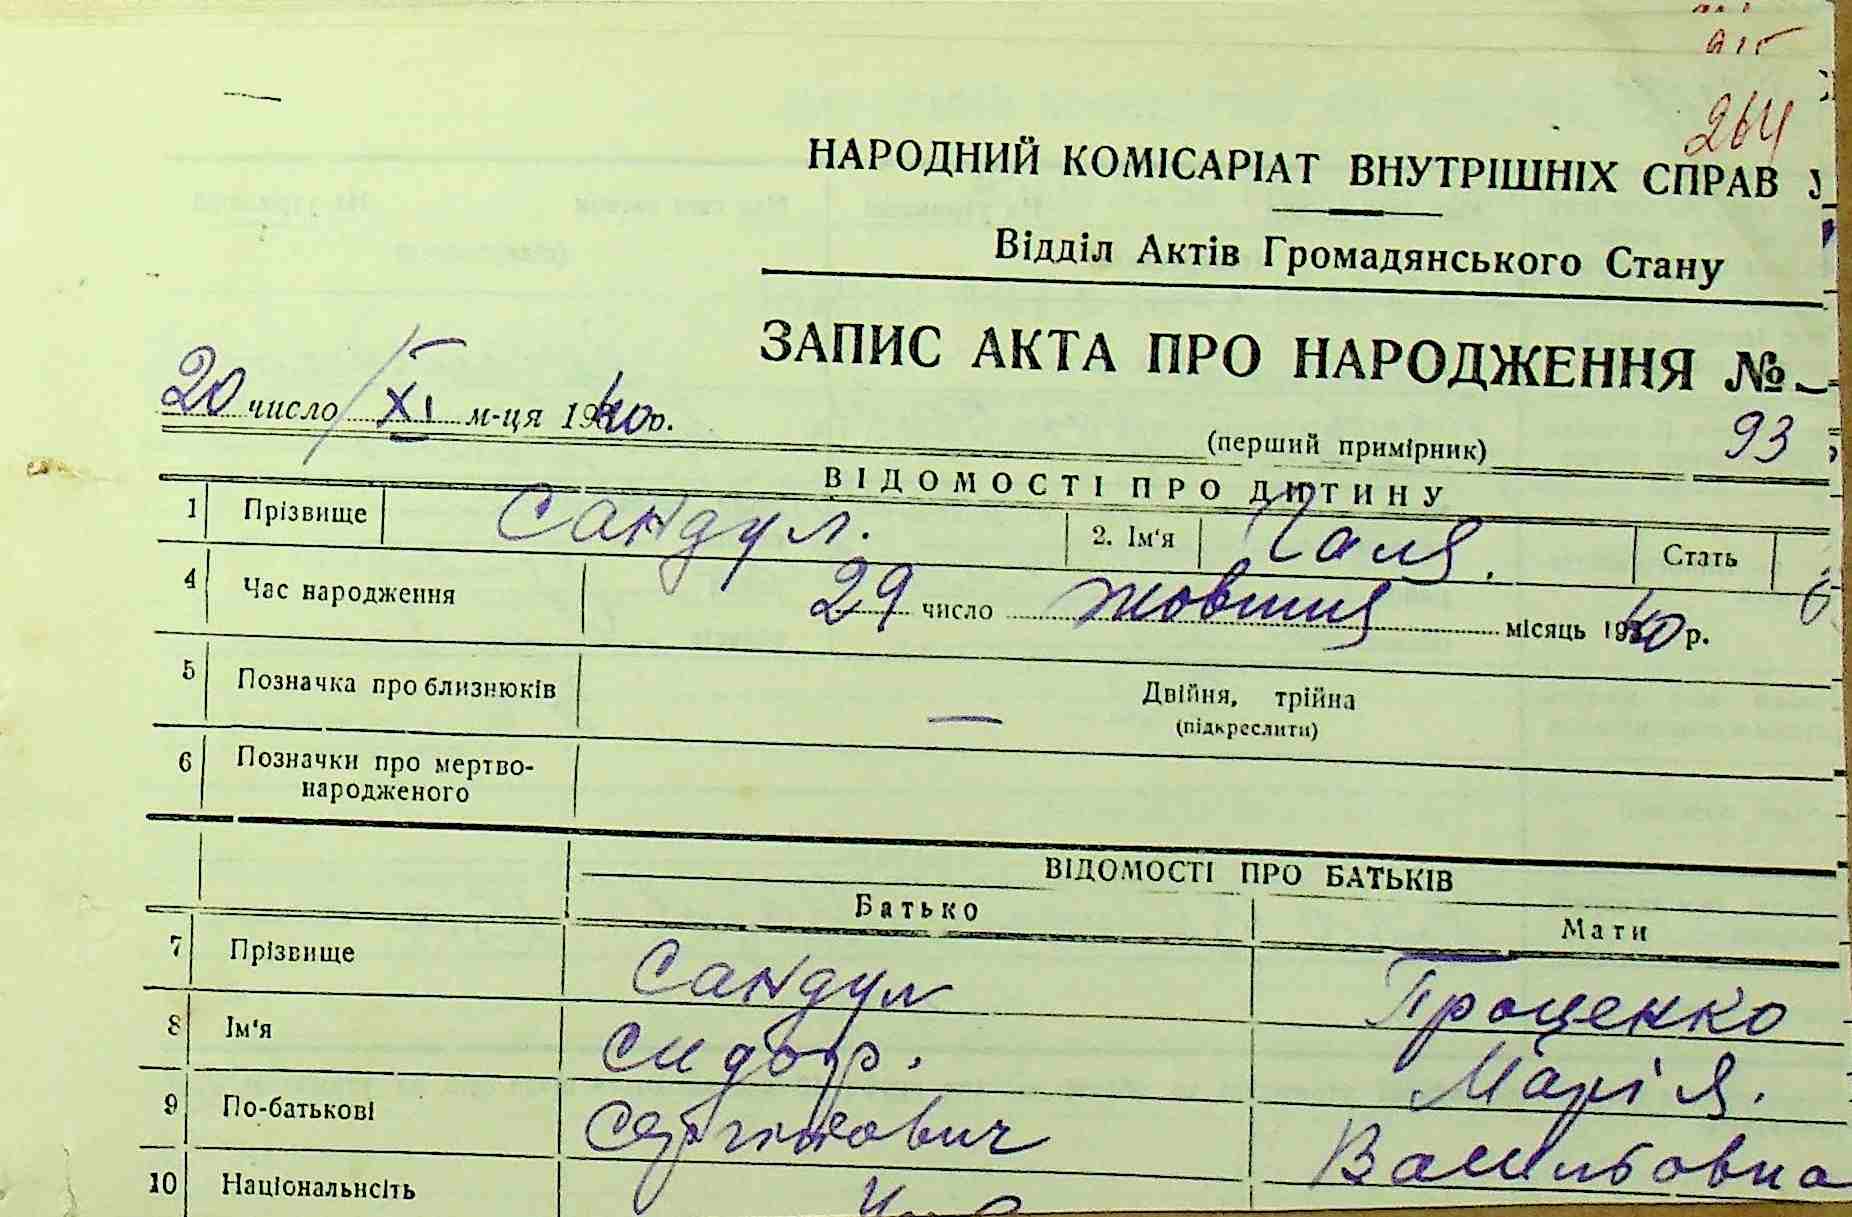 264
НАРОДНИЙ КОМІСАРІАТ ВНУТРІШНІХ СПРАВ У
Відділ Актів Громадянського Стану
ЗАПИС АКТА ПРО НАРОДЖЕННЯ №
20 число XI м-ця 1940 р.
(перший примірник) 93
ВІДОМОСТІ ПРО ДИТИНУ
1 Прізвище Сандул. 2. Ім'я Галя. Стать
4 Час народження 29 число жовтня місяць 1940 р.
5 Позначка про близнюків — Двійня, трійна
(підкреслити)
6 Позначки про мертво-
народженого
ВІДОМОСТІ ПРО БАТЬКІВ
Батько Мати
7 Прізвище Сандул Проценко
8 Ім'я Сидор. Марія.
9 По-батькові Сергійович Васильовна
10 Національність